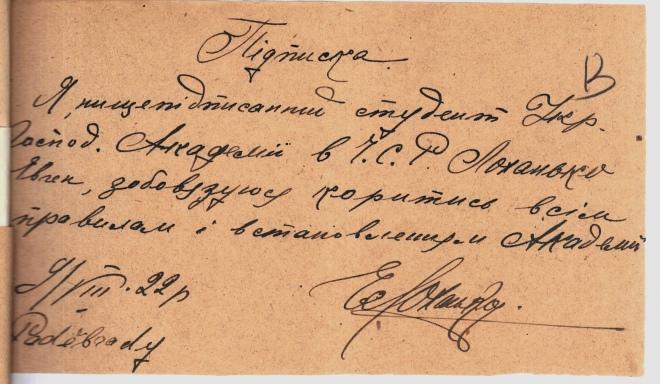 Підписка
В
Я, нищепідписаний студент Укр.
Господ. Академії в Ч.С.Р. Лоханько
Евген, зобовязуюся коритись всім
правилам і встановленням Академії
9/VIII. 22 р
Poděbrady
Е Лоханько.